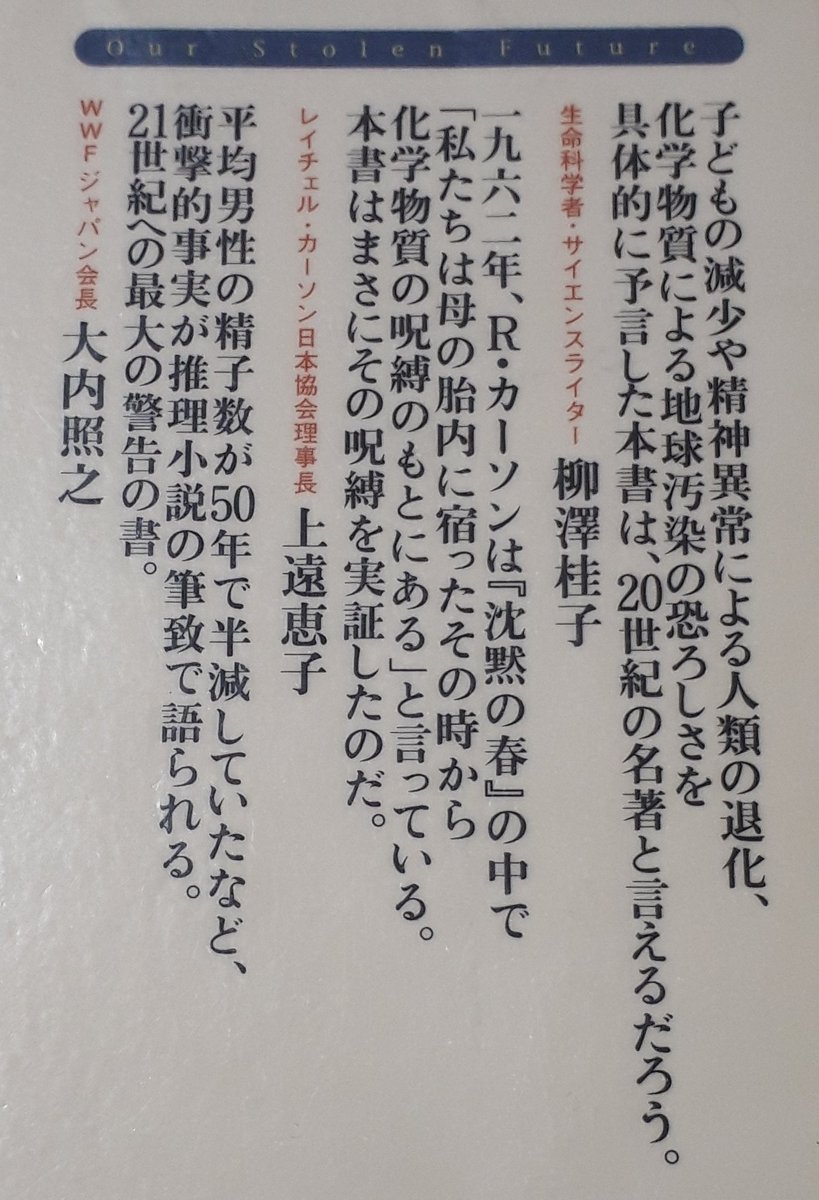 Our Stolen Future
子どもの減少や精神異常による人類の退化、
化学物質による地球汚染の恐ろしさを
具体的に予言した本書は、20世紀の名著と言えるだろう。
生命科学者・サイエンスライター 柳澤桂子
一九六二年、R・カーソンは『沈黙の春』の中で
「私たちは母の胎内に宿ったその時から
化学物質の呪縛のもとにある」と言っている。
本書はまさにその呪縛を実証したのだ。
レイチェル・カーソン日本協会理事長 上遠恵子
平均男性の精子数が50年で半減していたなど、
衝撃的事実が推理小説の筆致で語られる。
21世紀への最大の警告の書。
WWFジャパン会長 大内照之